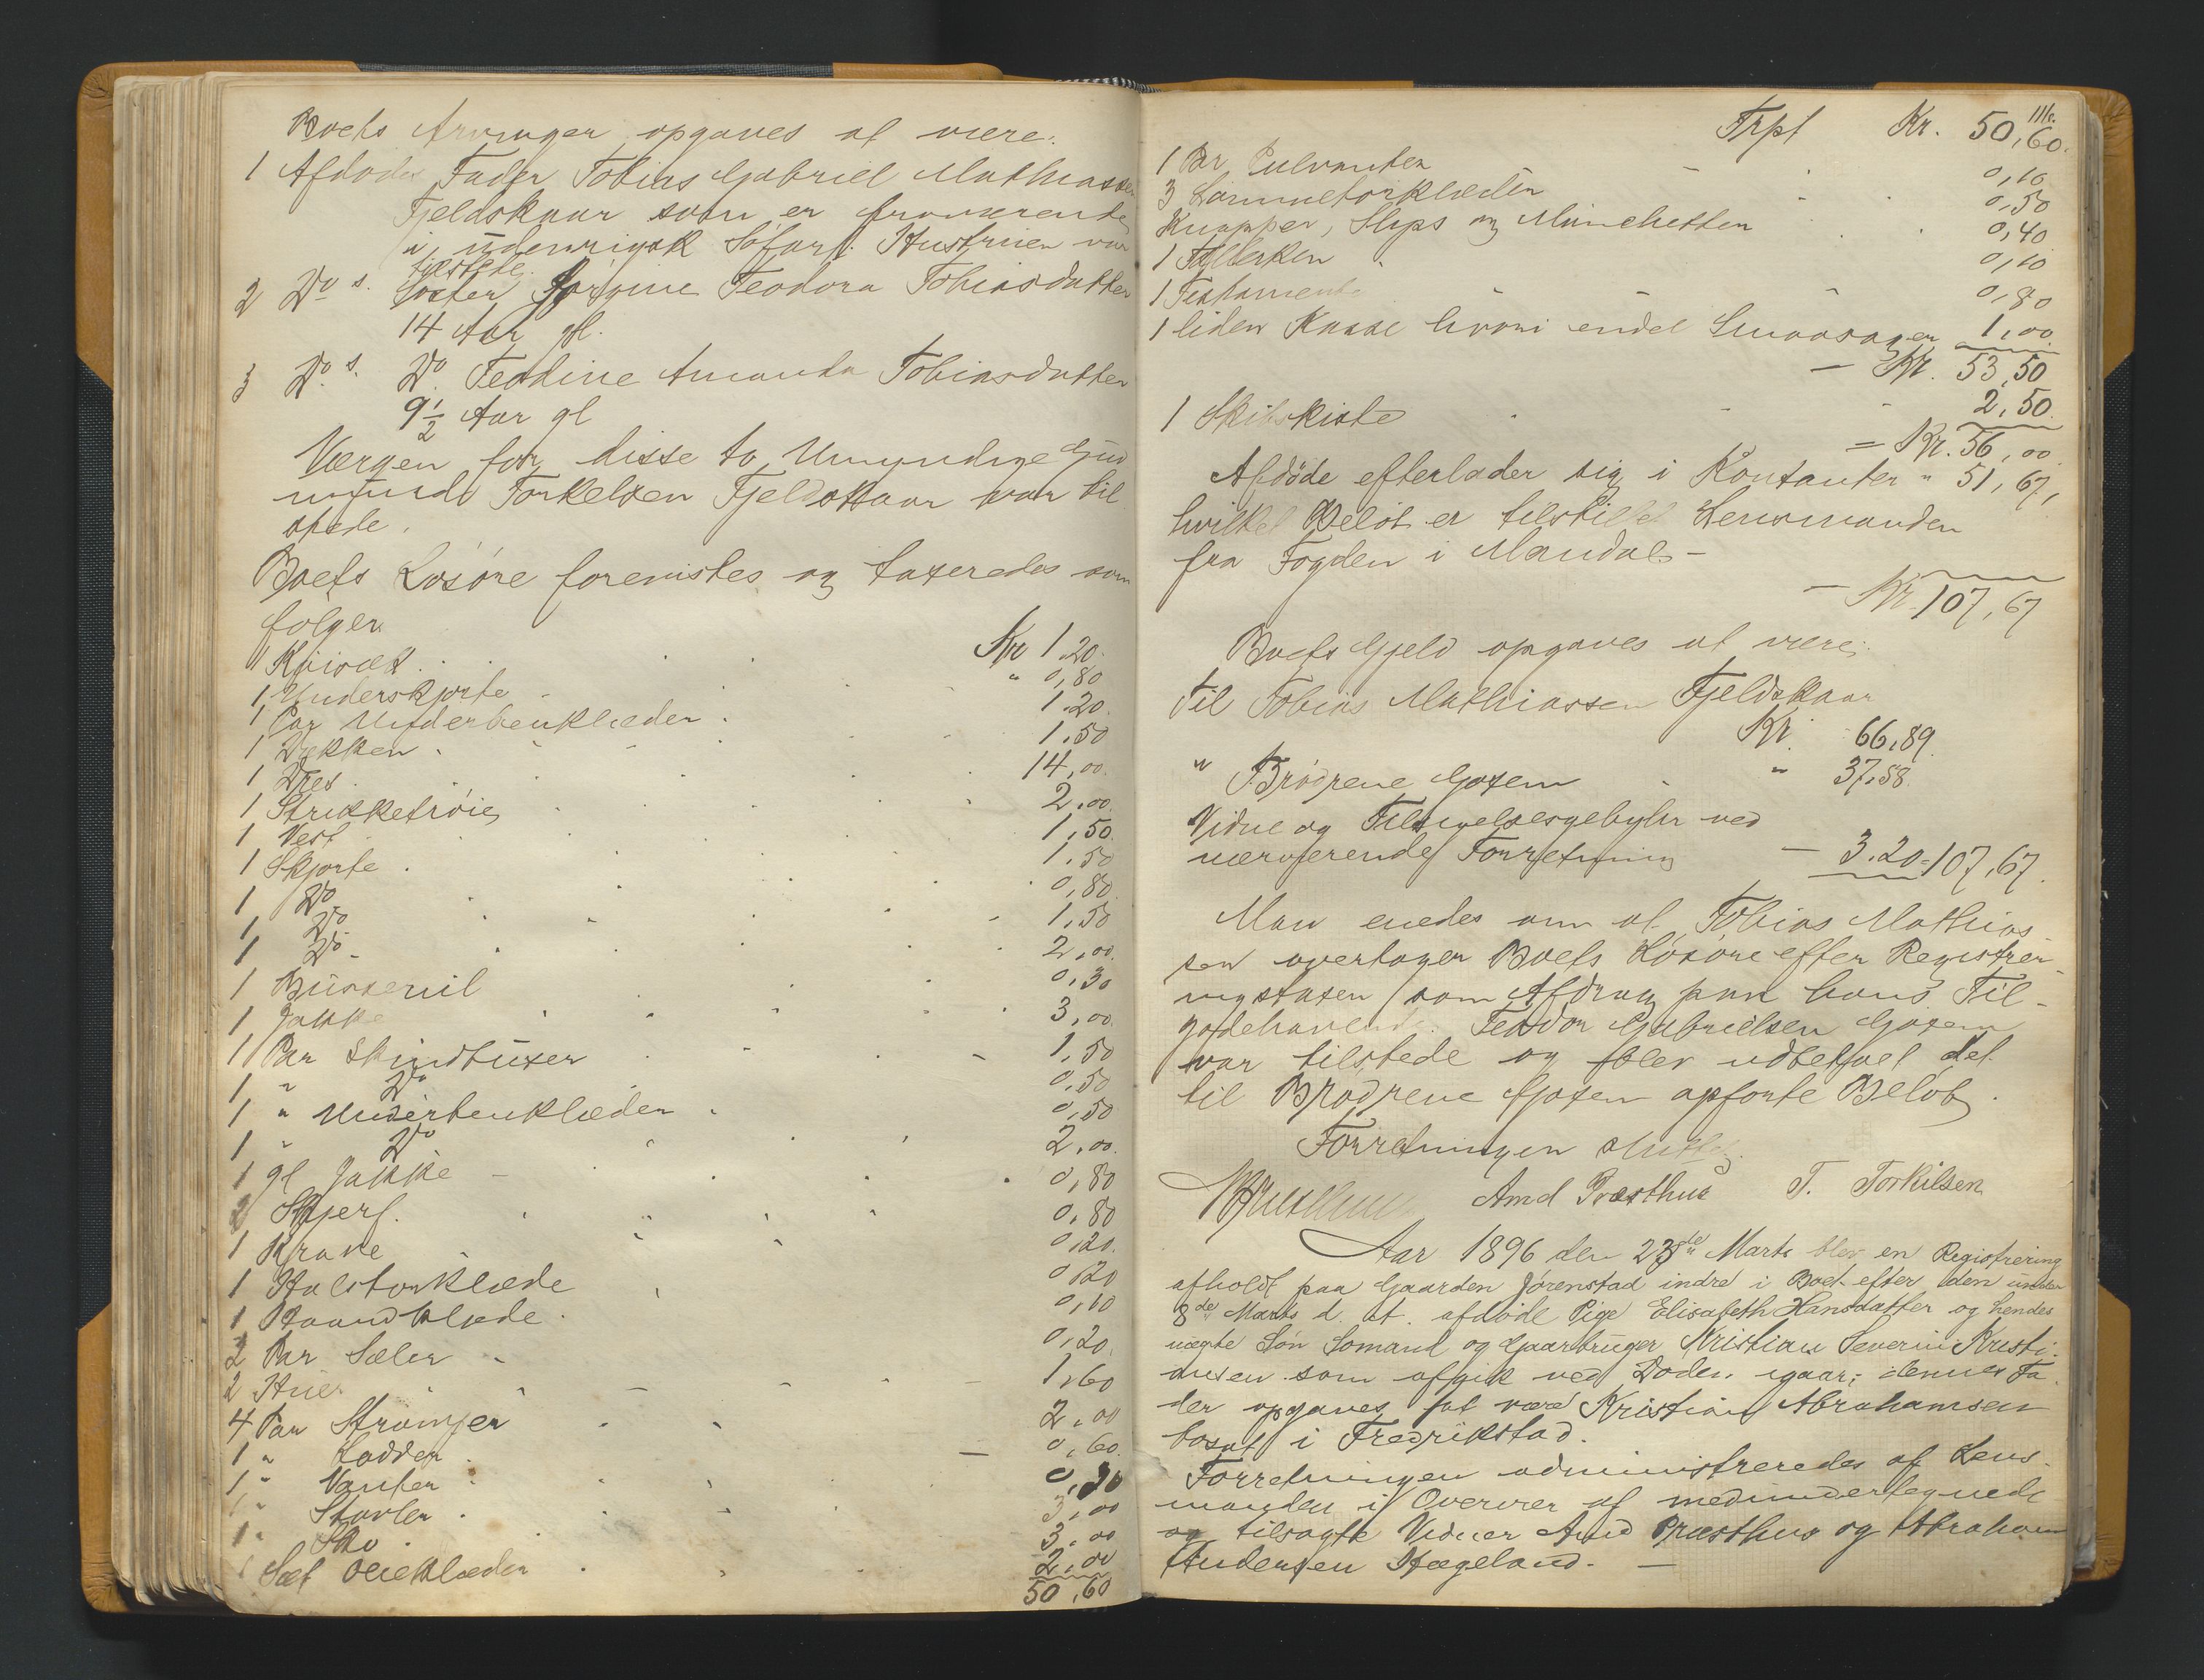 Boets Arvinger opgaves at være:
1 Afdødes Fader Tobias Gabriel Mathiassen
Fjeldskaar som er fraværende
i udenrigsk Søfart. Hustruen var
tilstede.
2 Do s. Søster Jørgine Teodora Tobiasdatter
14 Aar gl.
3 Do s. Do Teodine Amanda Tobiasdatter
9 1/2 Aar gl
Værgen for disse to Umyndige Gud
mund Torkelsen Fjeldskaar var til
stede.
Boets Løsøre forevistes og taxeredes som
følger
1 Kr 1.20.
1 Underskjorte " 0,80
1 Par Underbenklæder 1.20.
1 Dækken 1.50
1 Dres 14,00.
1 Strikketrøie 2.00.
1 Vest 1,50.
1 Skjorte 1.50
1 Do 0,80.
1 Do 1.50
1 Do 2,00.
1 Busserul 0,30
1 Jakke 3,00.
1 Par Skindbuxer 1,50
1 " Do 0,50
1 " Underbenklæder 0,50
1 " Do 2.00.
1 gl Jakke 0,80
2 Skjerf. 0,80
1 Krave 0,20.
1 Halstørklæde 0,20
1 Haandklæde 0,10
2 Par Seler 0,20.
2 Huer 1,60
4 Par Strømper 2,00
1 " Lodder 0,60.
1 " Vanter 0,30
1 " Støvler 3,00
1 " Sko 3,00
1 Sæt Olieklæder 2,00
50,60
111.
Trpt Kr. 50,60.
1 Par Pulvanter 0,10
3 Lommetørklæder 0,50
Knapper, Slips og Manchetter 0,40
1 Tællerken 0,10
1 Testamente 0,80
1 liden Kasse hvori endel Smaasager 1,00.
Kr. 53,50
1 Skibskiste 2,50.
= Kr. 56,00.
Afdøde efterlader sig i Kontanter " 51,67,
hvilket Beløb er tilstillet Lensmanden
fra Fogden i Mandal -
Kr. 107,67
Boets Gjeld opgaves at være:
Til Tobias Mathiassen Fjeldskaar
Kr. 66,89.
" Brødrene Gaxen " 37,58.
Vidne og Tilsigelsesgebyhr ved
nærværende Forretning — 3.20 = 107,67.
Man enedes om at Tobias Mathias
sen overtager Boets Løsøre efter Registrer-
ingstaxen som Afdrag paa hans Til-
godehavende. Teodor Gabrielsen Gaxen
var tilstede og blev udbetalt det
til Brødrene Gaxen opførte Beløb.
Forretningen sluttet.
Arnd Præsthus T. Torkilsen
Aar 1896 den 23de Marts blev en Registrering
afholdt paa Gaarden Jørenstad indre i Boet efter den under
8de Marts d. A. afdøde Pige Elisabeth Hansdatter og hendes
uægte Søn Sømand og Gaarbruger Kristian Severin Kristi-
ansen som afgik ved Døden igaar; dennes Fa-
der opgaves at være Kristian Abrahamsen
bosat i Fredrikstad.
Forretningen administreredes af Lens-
manden i Overvær af medundertegnede
og tilsagte Vidner Arnd Præsthus og Abraham
Andersen Hægeland. —